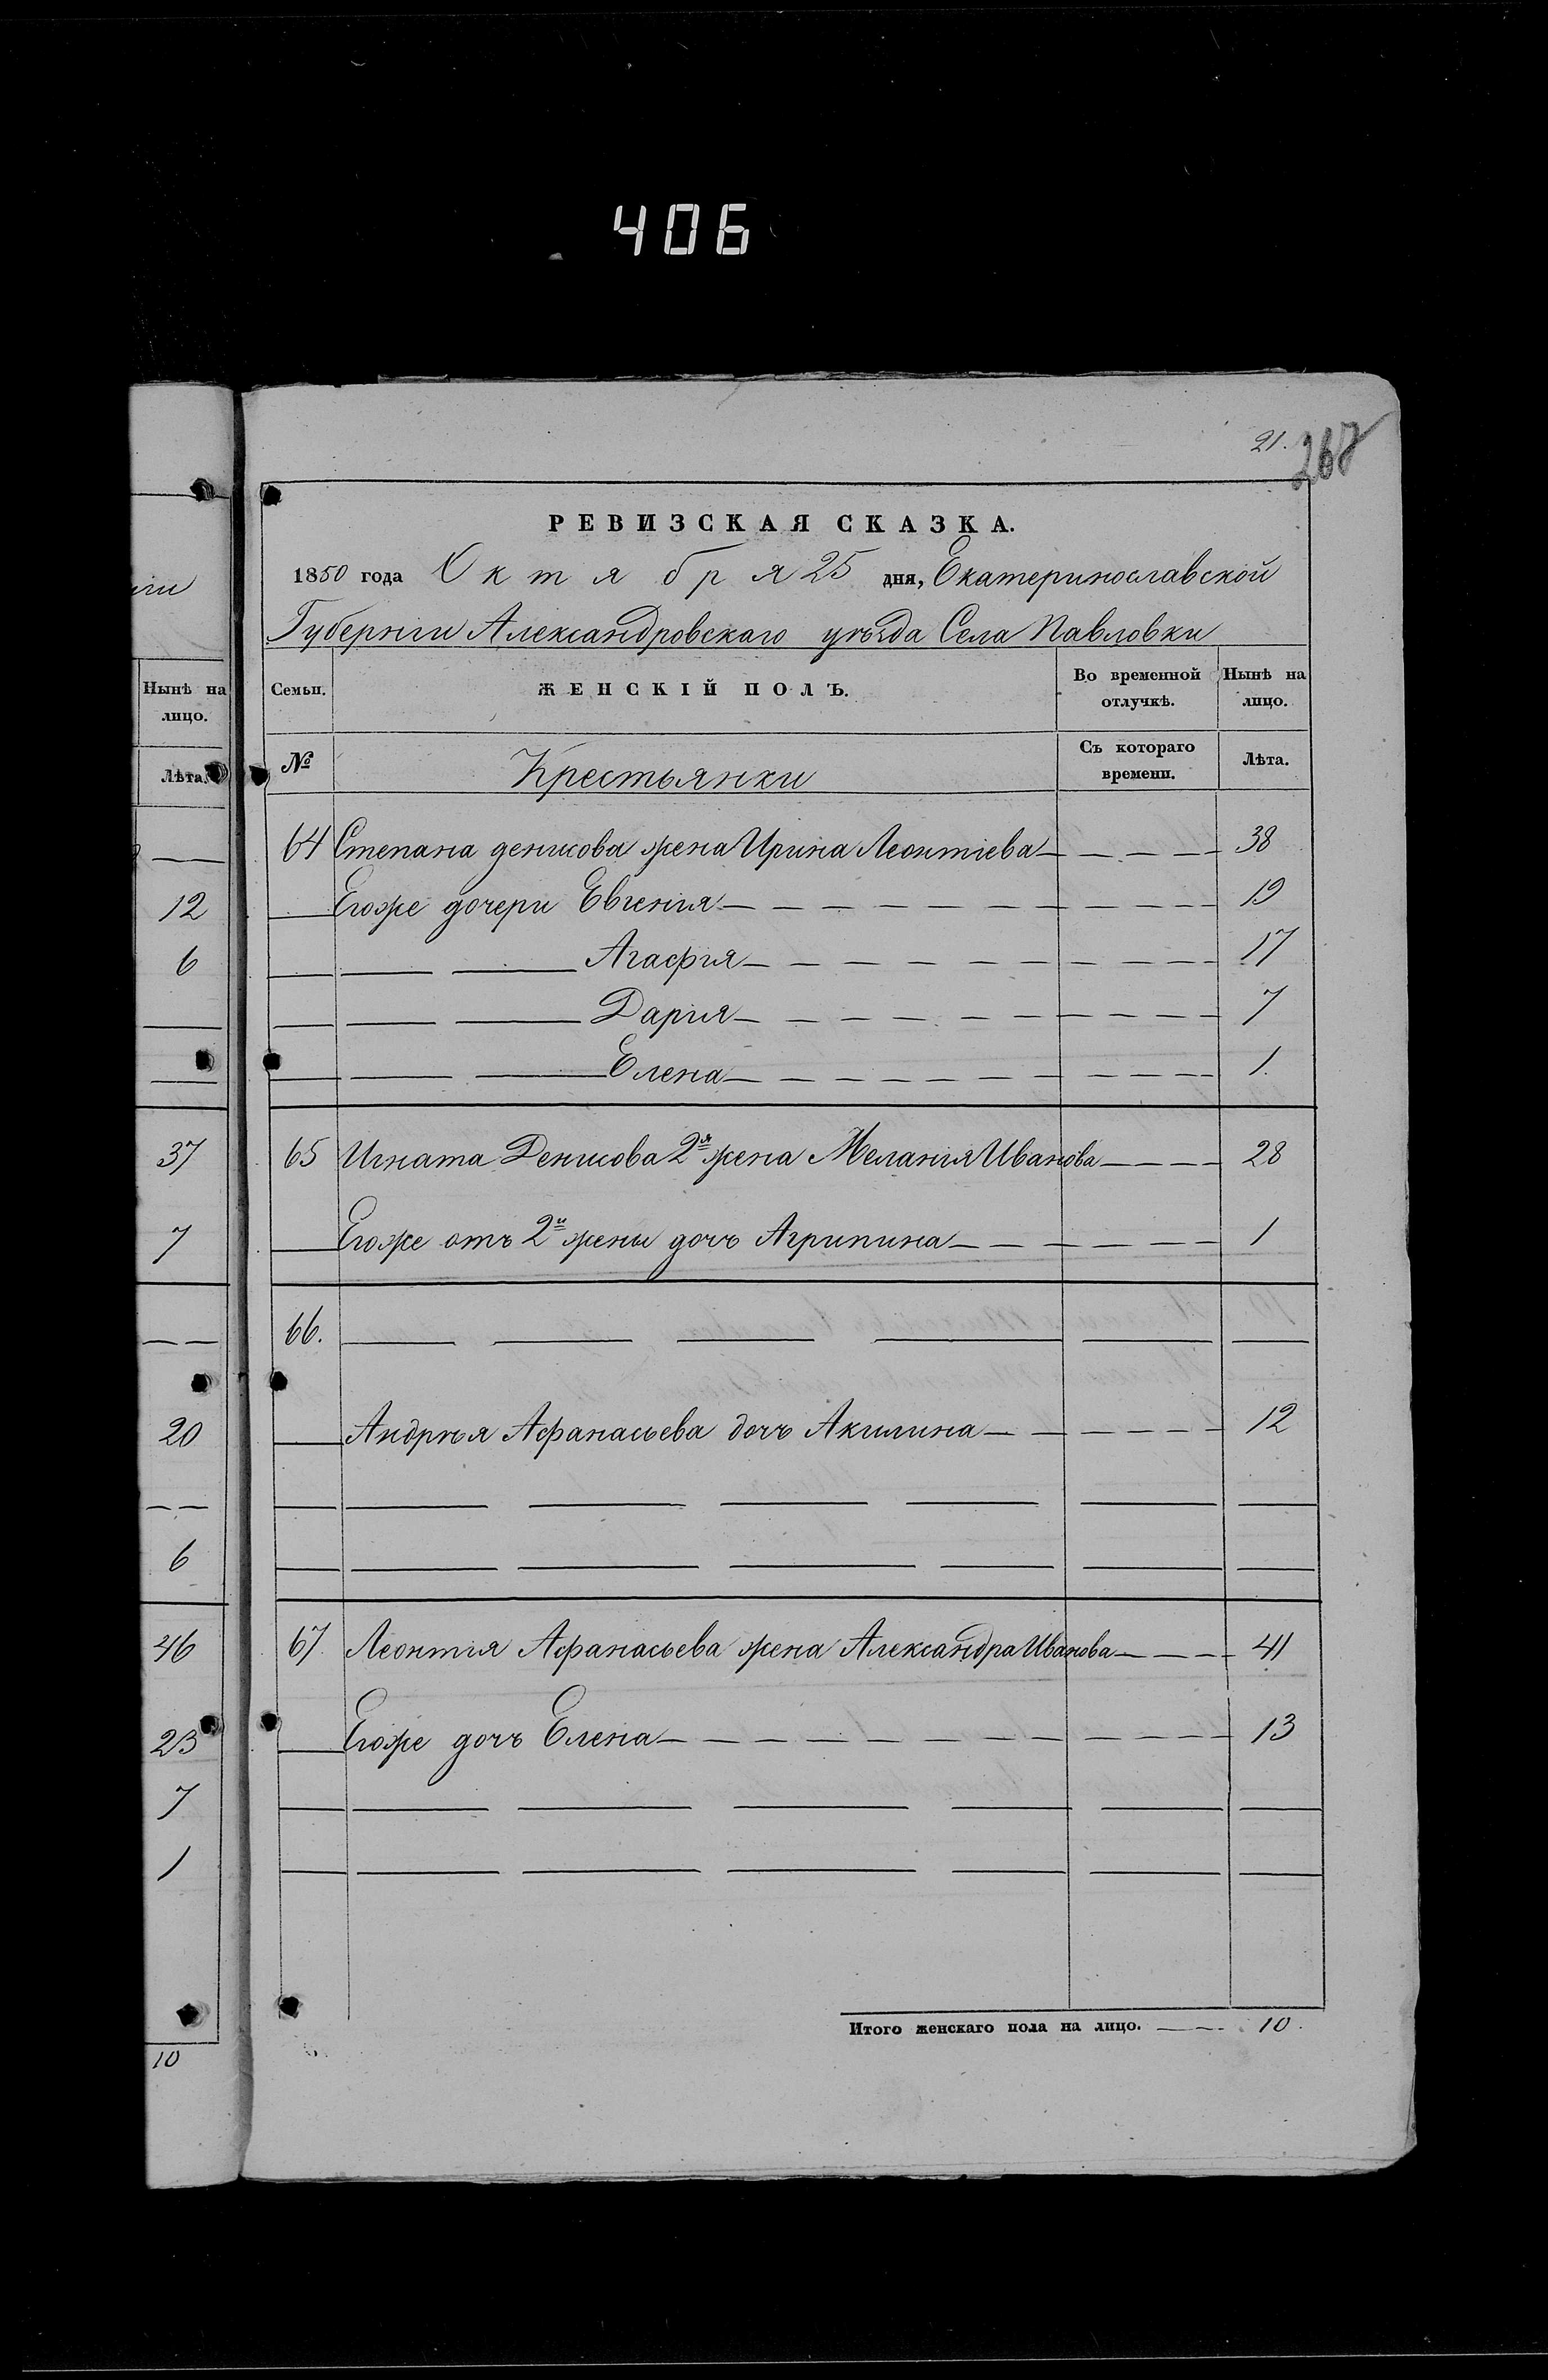 406
21.
268
РЕВИЗСКАЯ СКАЗКА.
1850 года Октября 25 дня, Екатеринославской
Губерніи Александровскаго уѣзда Села Павловки
Семьи. ЖЕНСКІЙ ПОЛЪ. Во временной отлучкѣ. Нынѣ на лицо.
№ Крестьянки Съ котораго времени. Лѣта.
64 Степана денисова жена Ирина Леонтіева 38
Егоже дочери Евгенія 19
Агафія 17
Дарія 7
Елена 1.
65 Игната Денисова 2я жена Меланія Иванова 28
Егоже отъ 2й жены дочь Агрипина 1
66.
Андрѣя Афанасьева дочь Акилина 12
67. Леонтія Афанасьева жена Александра Иванова 41
Егоже дочь Елена 13
Итого женскаго пола на лицо. 10.
Нынѣ на
лицо.
Лѣта.
12
6
37
7
20
6
46
23
7
1
10